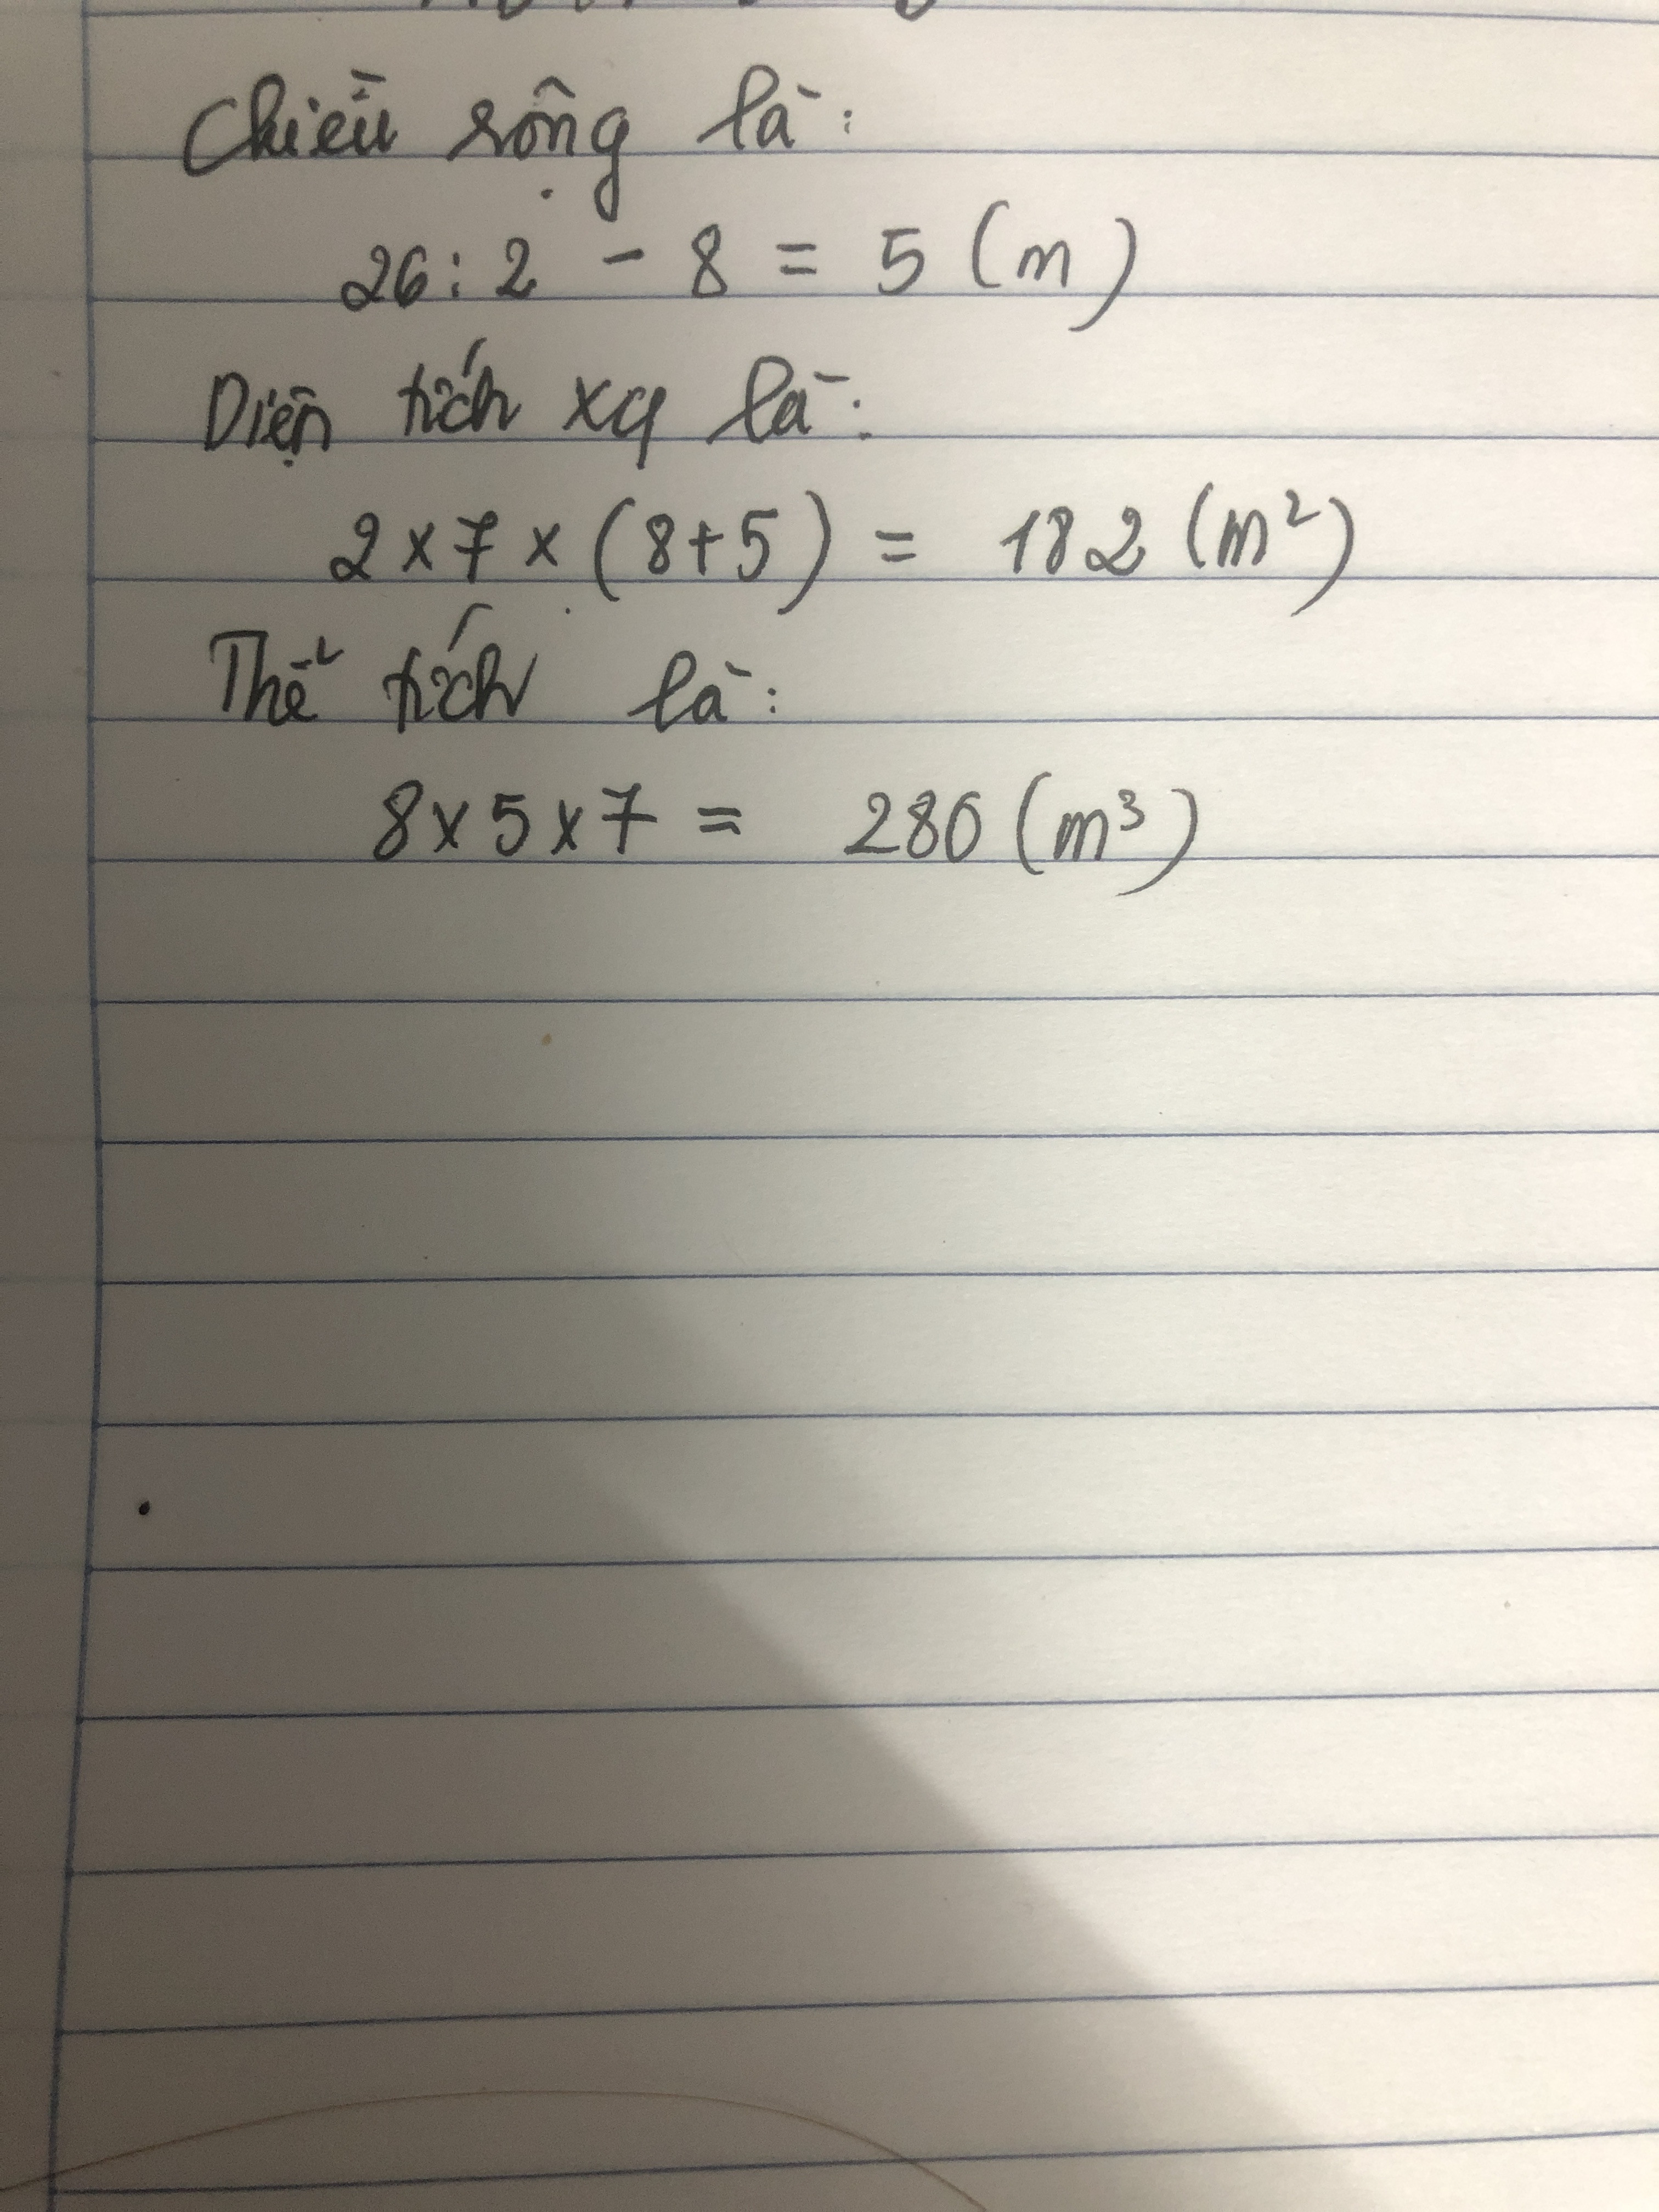 Chiều rộng là:
26 : 2 - 8 = 5 (m)
Diện tích xq là:
2 x 7 x (8+5) = 182 (m²)
Thể tích là:
8 x 5 x 7 = 280 (m³)